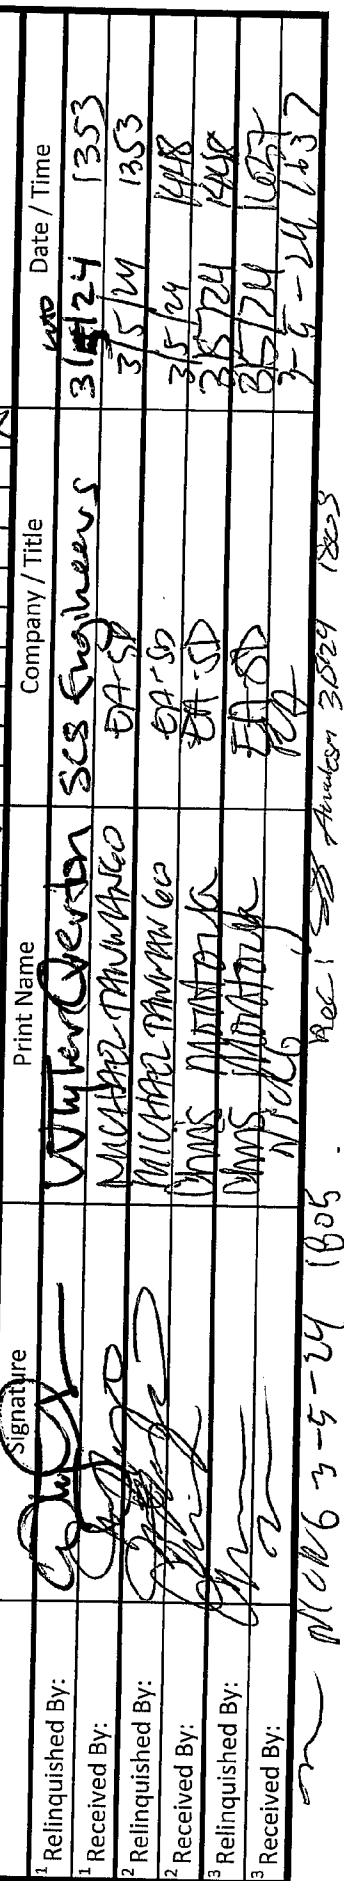 Signature Print Name Company / Title Date / Time
1 Relinquished By: Whyler Overton SCS Engineers 3/5/24 1353
1 Received By: MICHAEL EA-SD 3/5/24 1353
2 Relinquished By: MICHAEL EA-SD 3/5/24 1448
2 Received By: CHRIS MONTOYA EA-SD 3/5/24 1448
3 Relinquished By: CHRIS MONTOYA EA-SD 3/5/24 1637
3 Received By: NICK G EA 3-5-24 1637
NICK G 3-5-24 1805 Rec: 3/5/24 1805